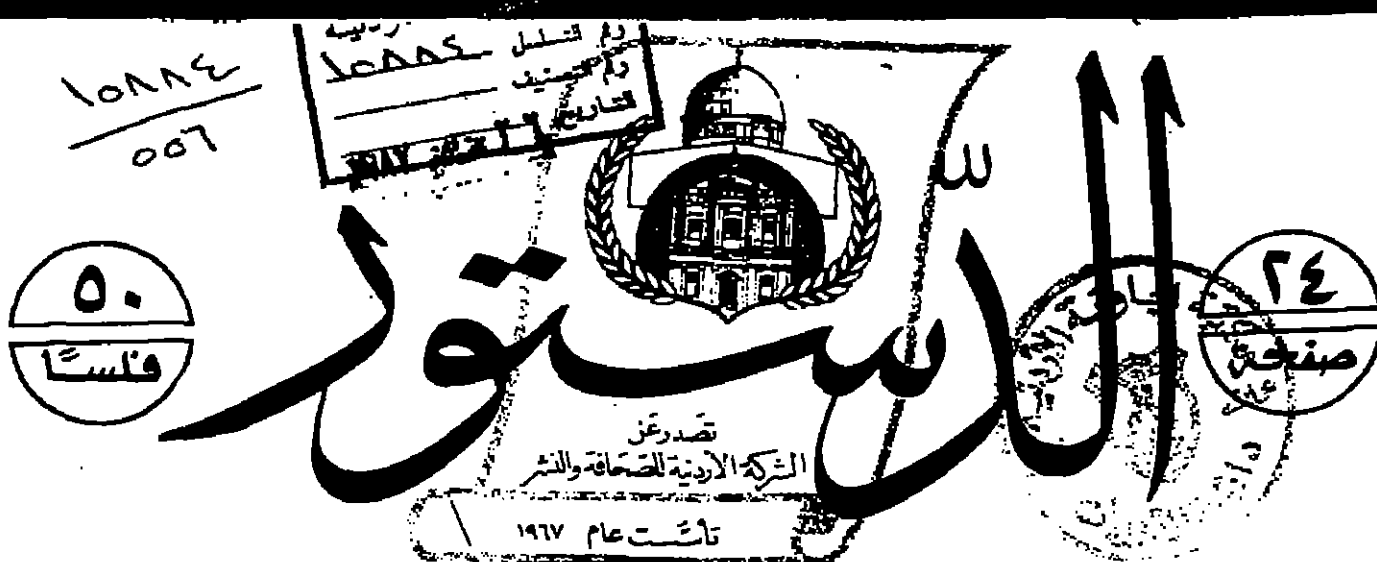 ١٥٨٨٤
٥٥٦
رقم التسلسل ١٥٨٨٤
رقم التصنيف
التاريخ
الدستور
٢٤
صفحة
٥٠
فلسًا
تصدر عن
الشركة الأردنية للصحافة والنشر
تأسست عام ١٩٦٧